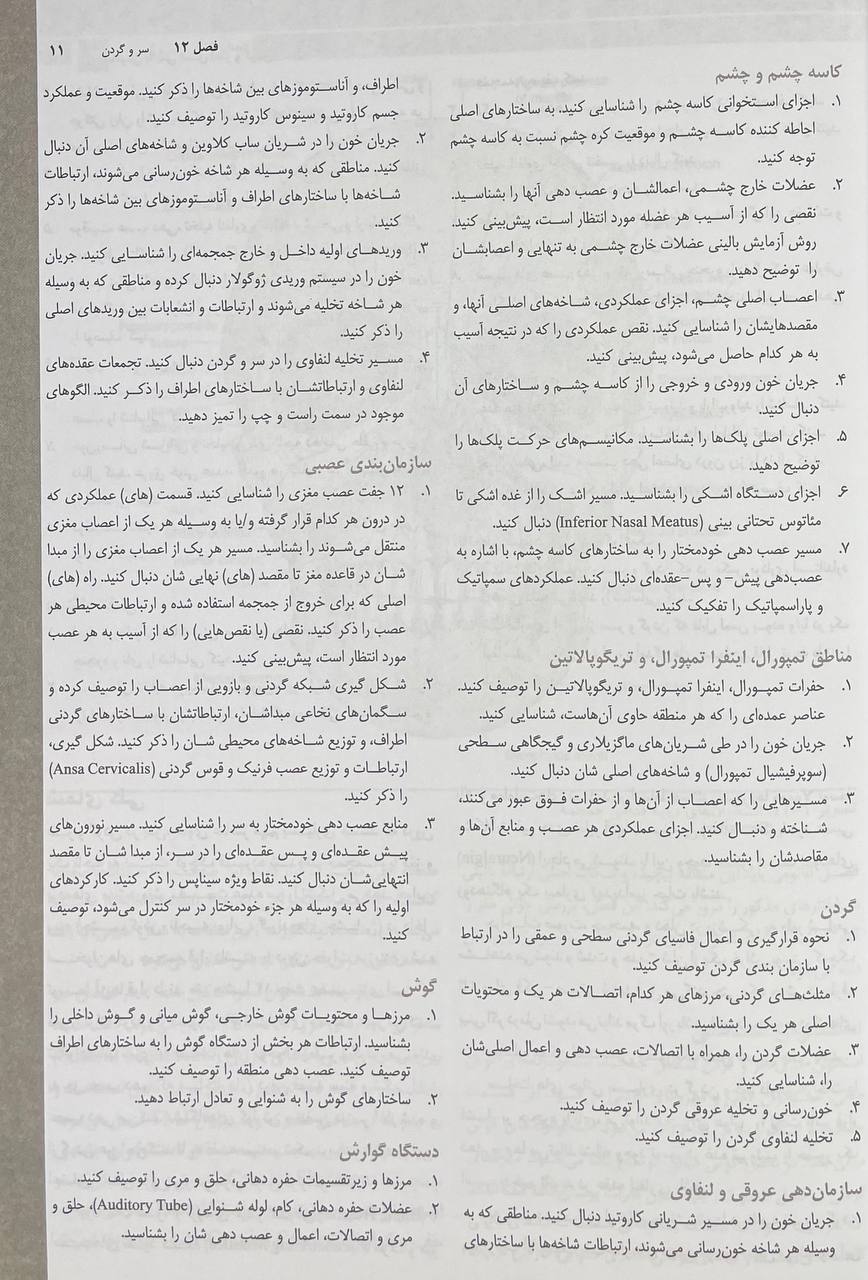 فصل ۱۲ سر و گردن ۱۱
کاسه چشم و چشم
۱. اجزای استخوانی کاسه چشم را شناسایی کنید، به ساختارهای اصلی
احاطه کننده کاسه چشم و موقعیت کره چشم نسبت به کاسه چشم
توجه کنید.
۲. عضلات خارج چشمی، اعمالشان و عصب دهی آنها را بشناسید.
نقصی را که از آسیب هر عضله مورد انتظار است، پیش‌بینی کنید.
روش آزمایش بالینی عضلات خارج چشمی به تنهایی و اعصابشان
را توضیح دهید.
۳. اعصاب اصلی چشم، اجزای عملکردی، شاخه‌های اصلی آنها، و
مقصدهایشان را شناسایی کنید. نقص عملکردی را که در نتیجه آسیب
به هر کدام حاصل می‌شود، پیش‌بینی کنید.
۴. جریان خون ورودی و خروجی را از کاسه چشم و ساختارهای آن
دنبال کنید.
۵. اجزای اصلی پلک‌ها را بشناسید. مکانیسم‌های حرکت پلک‌ها را
توضیح دهید.
۶. اجزای دستگاه اشکی را بشناسید. مسیر اشک را از غده اشکی تا
مئاتوس تحتانی بینی (Inferior Nasal Meatus) دنبال کنید.
۷. مسیر عصب دهی خودمختار را به ساختارهای کاسه چشم، با اشاره به
عصب‌دهی پیش– و پس–عقده‌ای دنبال کنید. عملکردهای سمپاتیک
و پاراسمپاتیک را تفکیک کنید.
مناطق تمپورال، اینفرا تمپورال، و تریگوپالاتین
۱. حفرات تمپورال، اینفرا تمپورال، و تریگوپالاتین را توصیف کنید.
عناصر عمده‌ای را که هر منطقه حاوی آن‌هاست، شناسایی کنید.
۲. جریان خون را در طی شریان‌های ماگزیلاری و گیجگاهی سطحی
(سوپرفیشیال تمپورال) و شاخه‌های اصلی شان دنبال کنید.
۳. مسیرهایی را که اعصاب از آن‌ها و از حفرات فوق عبور می‌کنند،
شناخته و دنبال کنید. اجزای عملکردی هر عصب و منابع آن‌ها و
مقاصدشان را بشناسید.
گردن
۱. نحوه قرارگیری و اعمال فاسیای گردنی سطحی و عمقی را در ارتباط
با سازمان بندی گردن توصیف کنید.
۲. مثلث‌های گردنی، مرزهای هر کدام، اتصالات هر یک و محتویات
اصلی هر یک را بشناسید.
۳. عضلات گردن را، همراه با اتصالات، عصب دهی و اعمال اصلی‌شان
را، شناسایی کنید.
۴. خون‌رسانی و تخلیه عروقی گردن را توصیف کنید.
۵. تخلیه لنفاوی گردن را توصیف کنید.
سازمان‌دهی عروقی و لنفاوی
۱. جریان خون را در مسیر شریانی کاروتید دنبال کنید. مناطقی که به
وسیله هر شاخه خون‌رسانی می‌شوند، ارتباطات شاخه‌ها با ساختارهای
اطراف، و آناستوموزهای بین شاخه‌ها را ذکر کنید. موقعیت و عملکرد
جسم کاروتید و سینوس کاروتید را توصیف کنید.
۲. جریان خون را در شریان ساب کلاوین و شاخه‌های اصلی آن دنبال
کنید. مناطقی که به وسیله هر شاخه خون‌رسانی می‌شوند، ارتباطات
شاخه‌ها با ساختارهای اطراف و آناستوموزهای بین شاخه‌ها را ذکر
کنید.
۳. وریدهای اولیه داخل و خارج جمجمه‌ای را شناسایی کنید. جریان
خون را در سیستم وریدی ژوگولار دنبال کرده و مناطقی که به وسیله
هر شاخه تخلیه می‌شوند و ارتباطات و انشعابات بین وریدهای اصلی
را ذکر کنید.
۴. مسیر تخلیه لنفاوی را در سر و گردن دنبال کنید. تجمعات عقده‌های
لنفاوی و ارتباطاتشان با ساختارهای اطراف را ذکر کنید. الگوهای
موجود در سمت راست و چپ را تمیز دهید.
سازمان‌بندی عصبی
۱. ۱۲ جفت عصب مغزی را شناسایی کنید. قسمت (های) عملکردی که
در درون هر کدام قرار گرفته و/یا به وسیله هر یک از اعصاب مغزی
منتقل می‌شوند را بشناسید. مسیر هر یک از اعصاب مغزی را از مبدا
شان در قاعده مغز تا مقصد (های) نهایی شان دنبال کنید. راه (های)
اصلی که برای خروج از جمجمه استفاده شده و ارتباطات محیطی هر
عصب را ذکر کنید. نقصی (یا نقص‌هایی) را که از آسیب به هر عصب
مورد انتظار است، پیش‌بینی کنید.
۲. شکل گیری شبکه گردنی و بازویی از اعصاب را توصیف کرده و
سگمان‌های نخاعی مبداشان، ارتباطاتشان با ساختارهای گردنی
اطراف، و توزیع شاخه‌های محیطی شان را ذکر کنید. شکل گیری،
ارتباطات و توزیع عصب فرنیک و قوس گردنی (Ansa Cervicalis)
را ذکر کنید.
۳. منابع عصب دهی خودمختار به سر را شناسایی کنید. مسیر نورون‌های
پیش عقده‌ای و پس عقده‌ای را در سر، از مبدا شان تا مقصد
انتهایی‌شان دنبال کنید. نقاط ویژه سیناپس را ذکر کنید. کارکردهای
اولیه را که به وسیله هر جزء خودمختار در سر کنترل می‌شود، توصیف
کنید.
گوش
۱. مرزها و محتویات گوش خارجی، گوش میانی و گوش داخلی را
بشناسید. ارتباطات هر بخش از دستگاه گوش را به ساختارهای اطراف
توصیف کنید. عصب دهی منطقه را توصیف کنید.
۲. ساختارهای گوش را به شنوایی و تعادل ارتباط دهید.
دستگاه گوارش
۱. مرزها و زیرتقسیمات حفره دهانی، حلق و مری را توصیف کنید.
۲. عضلات حفره دهانی، کام، لوله شنوایی (Auditory Tube)، حلق و
مری و اتصالات، اعمال و عصب دهی شان را بشناسید.